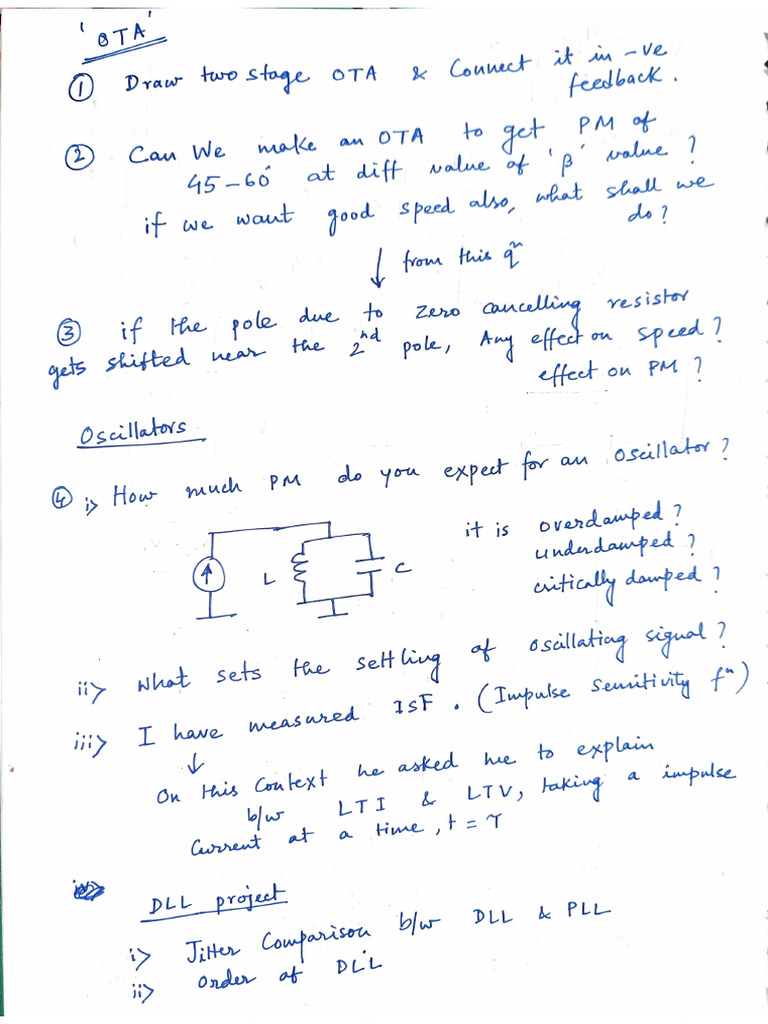 'OTA'
① Draw two stage OTA & Connect it in -ve
feedback.
② Can We make an OTA to get PM of
45-60° at diff value of 'β' value?
if we want good speed also, what shall we
do?
↓ from this qⁿ
③ if the pole due to zero cancelling resistor
gets shifted near the 2nd pole, Any effect on speed?
effect on PM?
Oscillators
④ i> How much PM do you expect for an oscillator?
it is overdamped?
underdamped?
critically damped?
L C
ii> What sets the settling of oscillating signal?
iii> I have measured ISF. (Impulse Sensitivity fⁿ)
↓
On this Context he asked me to explain
b/w LTI & LTV, taking a impulse
Current at a time, t = τ
DLL project
i> Jitter Comparison b/w DLL & PLL
ii> Order of DLL